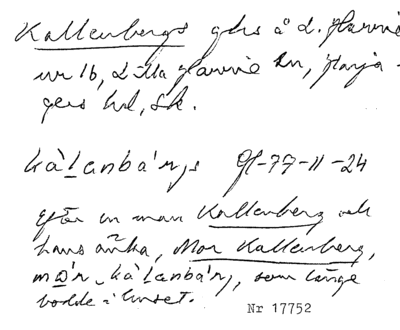 Kallenbergs ghs å L. Harrie
nr 16, Lilla Harrie sn, Harja-
gers hd, Sk.
kà'lanbà'rjs Gf-77-11-24
Efter en man Kallenberg och
hans änka, Mor Kallenberg,
kà'lanbà'rj, som länge
bodde i huset.
Nr 17752